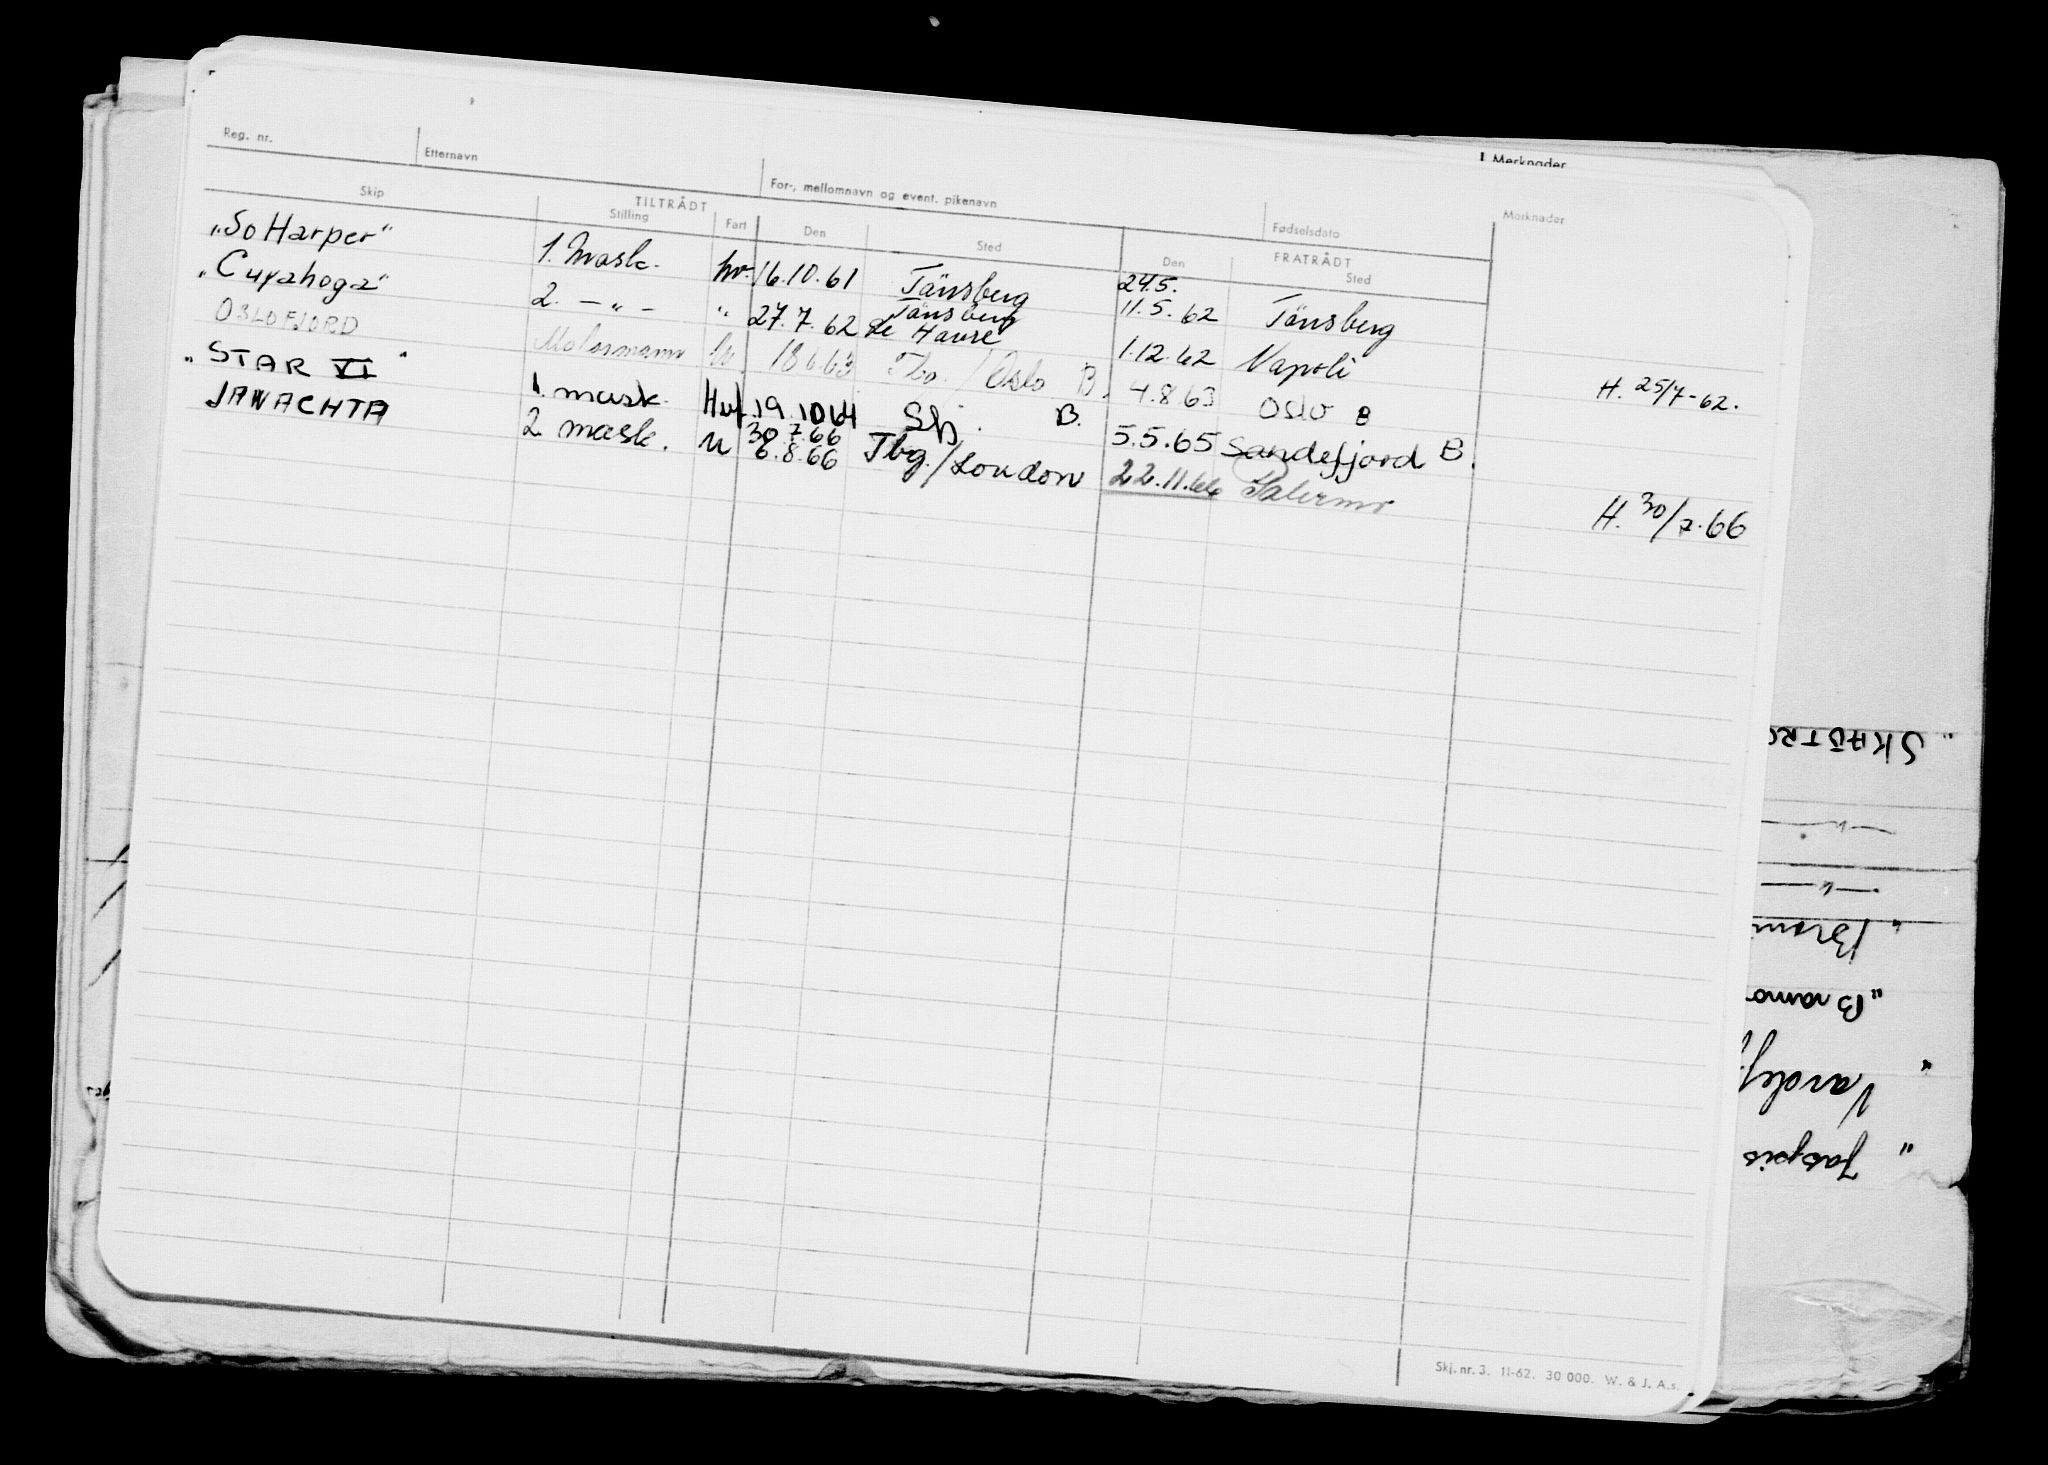 Reg. nr. Etternavn For-, mellomnavn og event. pikenavn Fødselsdato Merknader
Merknader
TILTRÅDT FRATRÅDT
Skip Stilling Fart Den Sted Den Sted
„So Harper" 1. Mask. hv. 16.10.61 Tønsberg 24.5. 11.5.62 Tønsberg
„Cuyahoga" 2. — „ — " 27.7.62 Tønsberg Le Havre 1.12.62 Napoli H. 25/7-62.
OSLOFJORD Motormann 18 6 63 Tbg. / Oslo B. 4.8 63 OSLO B
„STAR VI" 1. mask. Hvf. 19.10 64 Sfj. B. 5.5.65 Sandefjord B.
JAWACHTA 2 mask. U 30.7.66 6.8.66 Tbg./London 22.11.66 Palermo H. 30/7.66
Skj. nr. 3. 11-62. 30 000. W. & J. A.s.